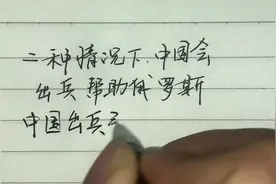 二种情况下.中国会
出兵帮助俄罗斯
中国出兵